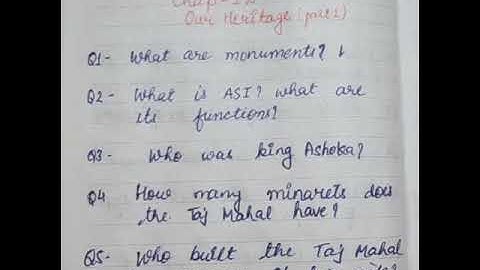 Our Heritage (part 1)
Q1- What are monuments?
Q2- What is ASI? what are
its functions?
Q3- Who was king Ashoka?
Q4 How many minarets does
the Taj Mahal have?
Q5- Who built the Taj Mahal